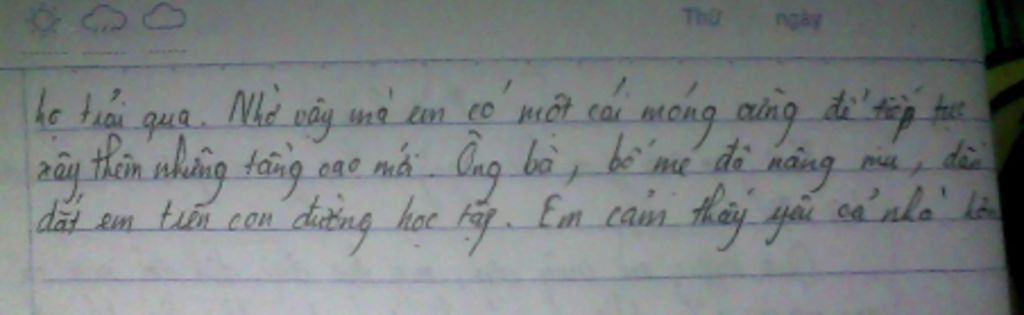 Thứ ngày
họ trải qua. Nhờ vậy mà em có một cái móng cứng để tiếp tục
xây thêm những tầng cao mới. Ông bà, bố mẹ đã nâng niu, dẫn
dắt em trên con đường học tập. Em cảm thấy yêu cả nhà